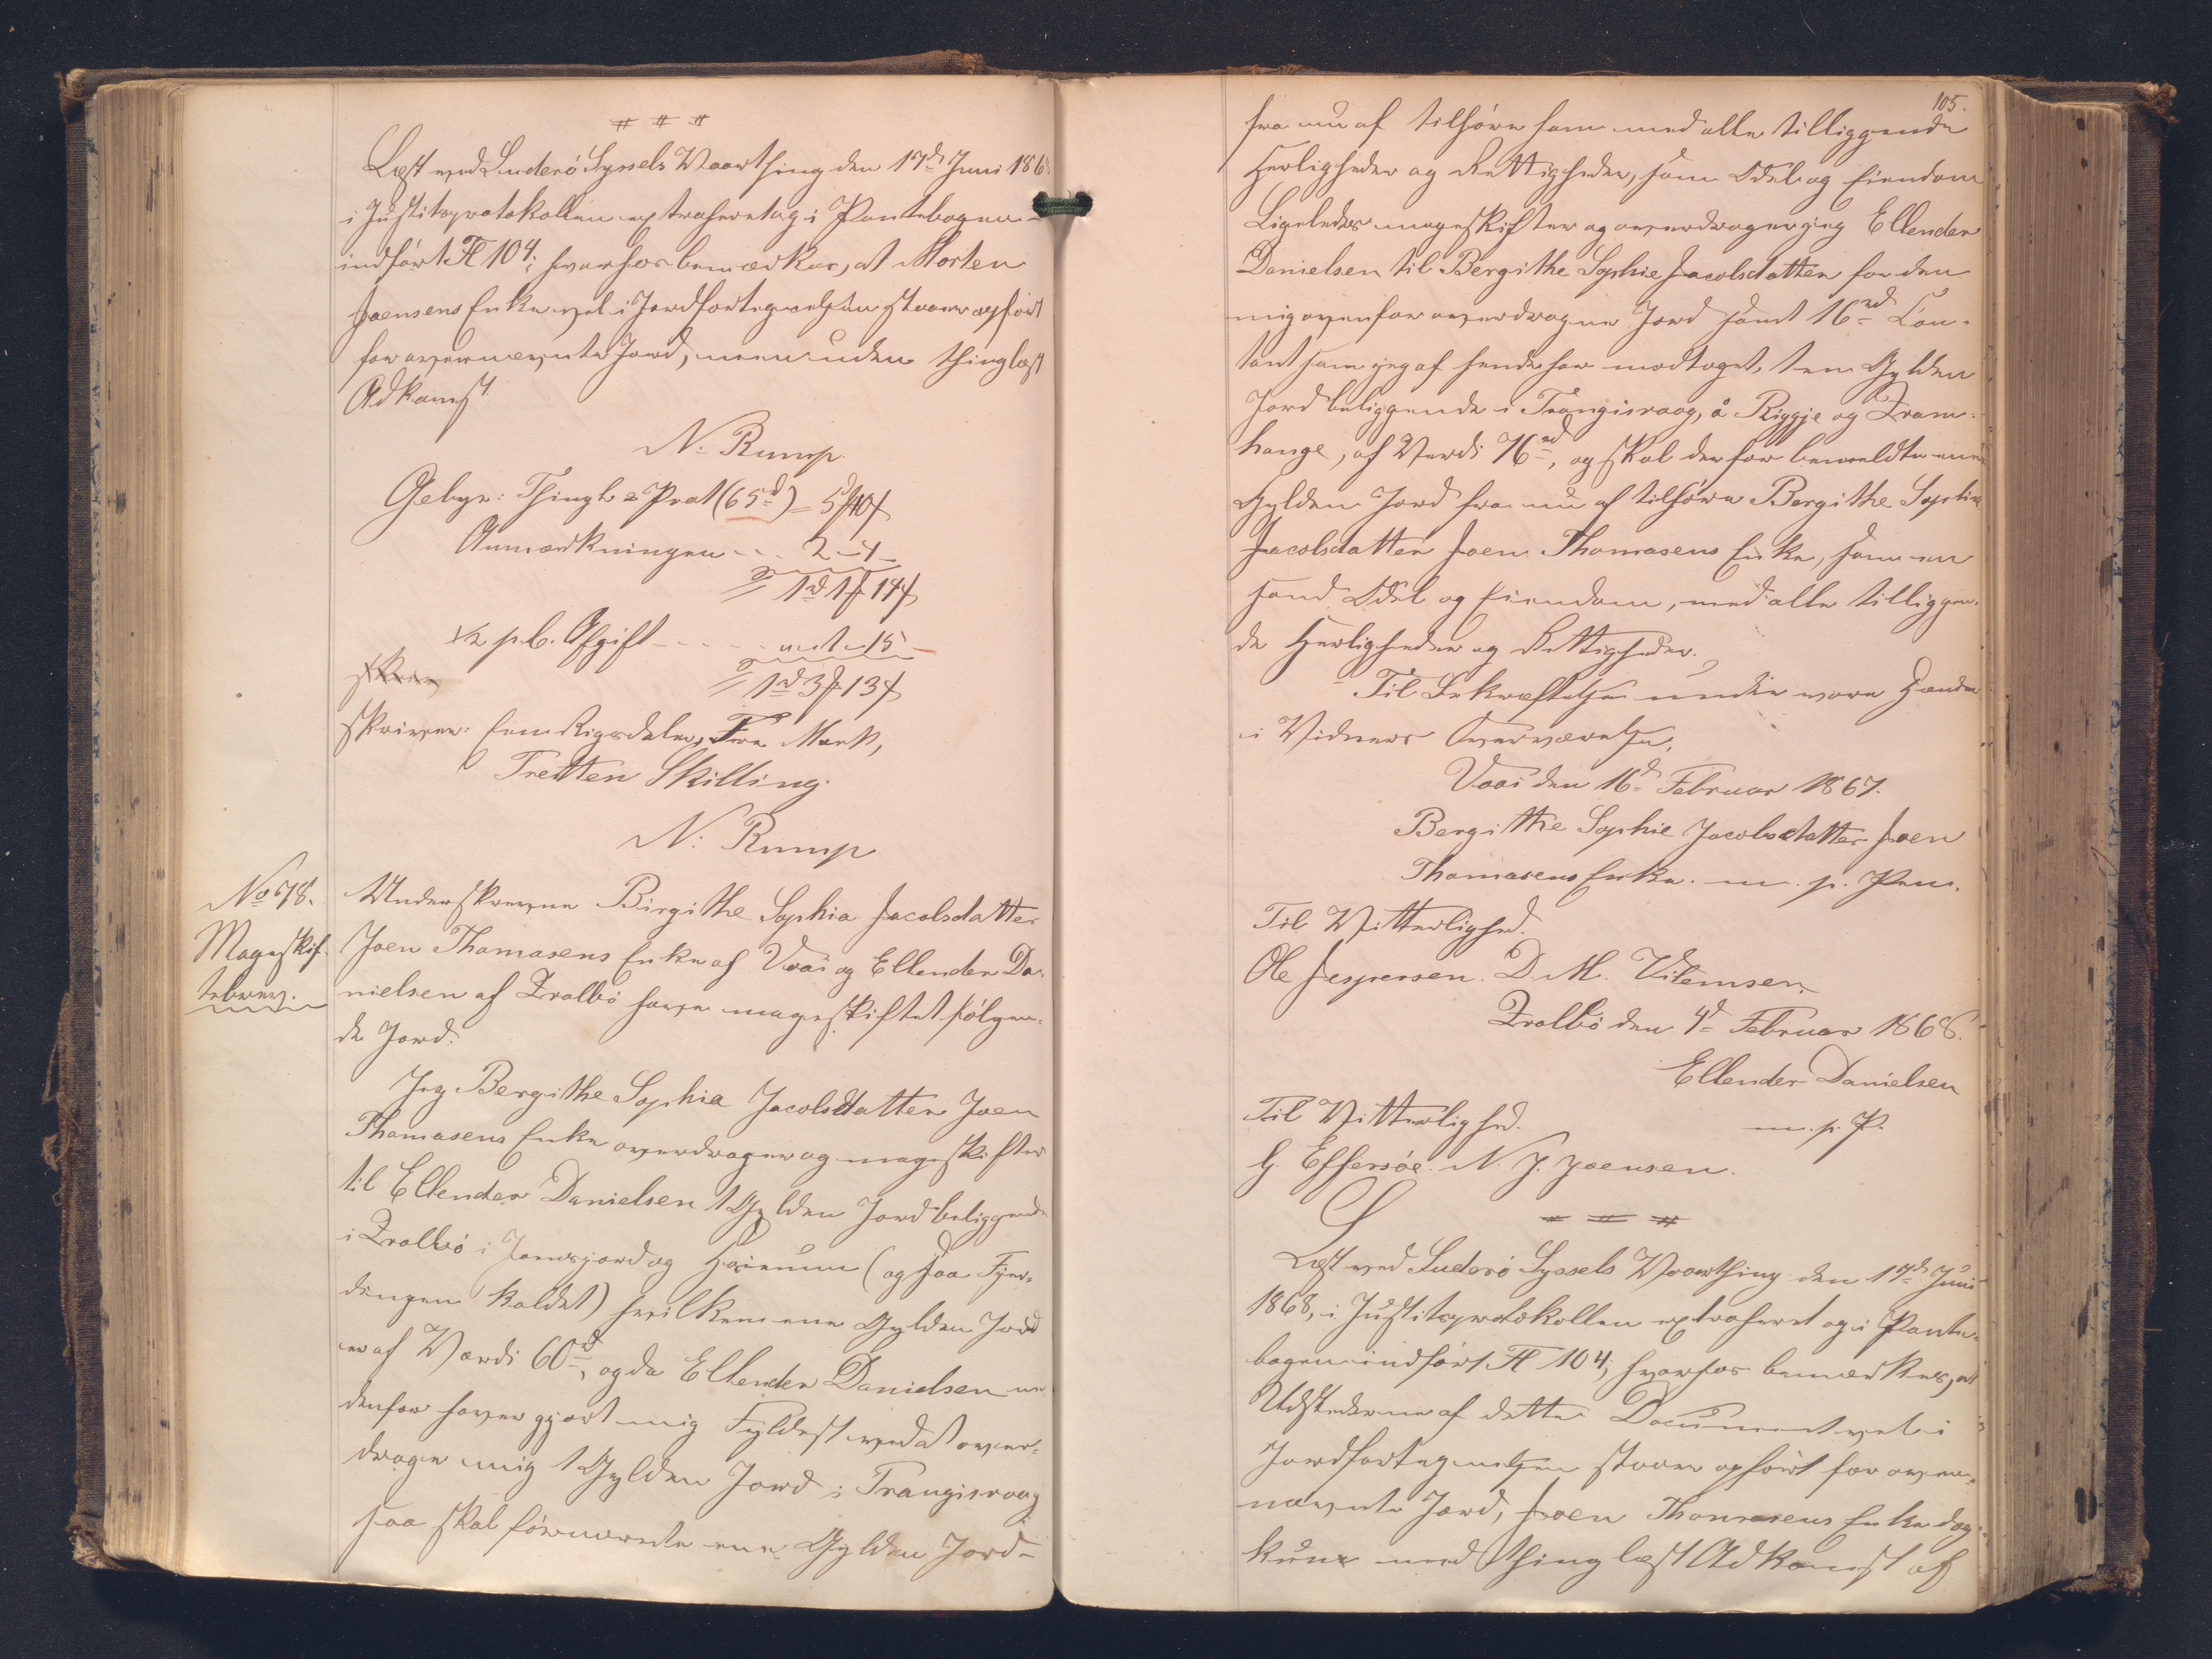 # # #
Læst ved Suderø Syssels Vaarthing den 17d Juni 186
i Justitsprotokollen extraheret og i Pantebogen
indført Fl 104; hvorhos bemærkes, at Morten
Joensens Enke vel i Jordfortegnelsen staaer opført
for ovennævnte Jord, men uden thinglæst
Adkomst.
N: Rump
Gebyr: Thingl & Prot (65d) = 5 40
Anmærkningen - - - 2 - 4 -
1rd 1 14
1/2 pC. Afgift - - - - - 15 -
1rd 3 13
skriver: Een Rigsdaler, Tre Mark,
Tretten Skilling.
N: Rump
No 78.
Mageskif-
tebrev.
Underskrevne Birgithe Sophia Jacobsdatter
Joen Thomasens Enke af Vaai og Ellender Da-
nielsen af Qvalbø have mageskiftet følgen-
de Jord:
Jeg Bergithe Sophia Jacobsdatter Joen
Thomasens Enke overdrager og mageskifter
til Ellender Danielsen 1 Gylden Jord beliggende
i Qvalbø i Jansgjord og Heimum (og paa Fjer-
dingen kaldet) hvilken ene Gylden Jord
er af Værdi 60rd, og da Ellender Danielsen
derfor haver gjort mig Fyldest ved at over-
drage mig 1 Gylden Jord i Trangisvaag
saa skal førnævnte ene Gylden Jord -
105.
fra nu af tilhøre ham med alle tilliggende
Herligheder og Rettigheder, som Odel og Eiendom
Ligeledes mageskifter og overdrager jeg Ellender
Danielsen til Bergithe Sophie Jacobsdatter for den
mig ovenfor overdragne Jord samt 16rd Con-
tant som jeg af hende har modtaget, 1 en Gylden
Jord beliggende i Trangisvaag, å Ryggje og Tram-
hange, af Værdi 76rd, og skal derfor bemeldte ene
Gylden Jord fra nu af tilhøre Bergithe Sophia
Jacobsdatter Joen Thomasens Enke, som en
sand Odel og Eiendom, med alle tilliggen-
de Herligheder og Rettigheder.
Til Bekræftelse under vore Hænder
i Vidners Overværelse.
Vaai den 16d Februar 1867.
Bergithe Sophie Jacobsdatter Joen
Thomasens Enke. m. p. Pen.
Til Vitterlighed.
Ole Jespersen. D. M. Vilemsen.
Qvalbø den 4d Februar 1868.
Ellender Danielsen
m. p. P.
Til Vitterlighed.
G. Effersøe. N. J. Joensen.
# # #
Læst ved Suderø Syssels Vaarthing den 17d Juni
1868, i Justitsprotokollen extraheret og i Pante-
bogen indført Fl 104, hvorhos bemærkes, at
Udstederne af dette Document vel i
Jordfortegnelsen staaer opført for oven-
nævnte Jord, Joen Thomasens Enke dog
kun med thinglæst Adkomst af